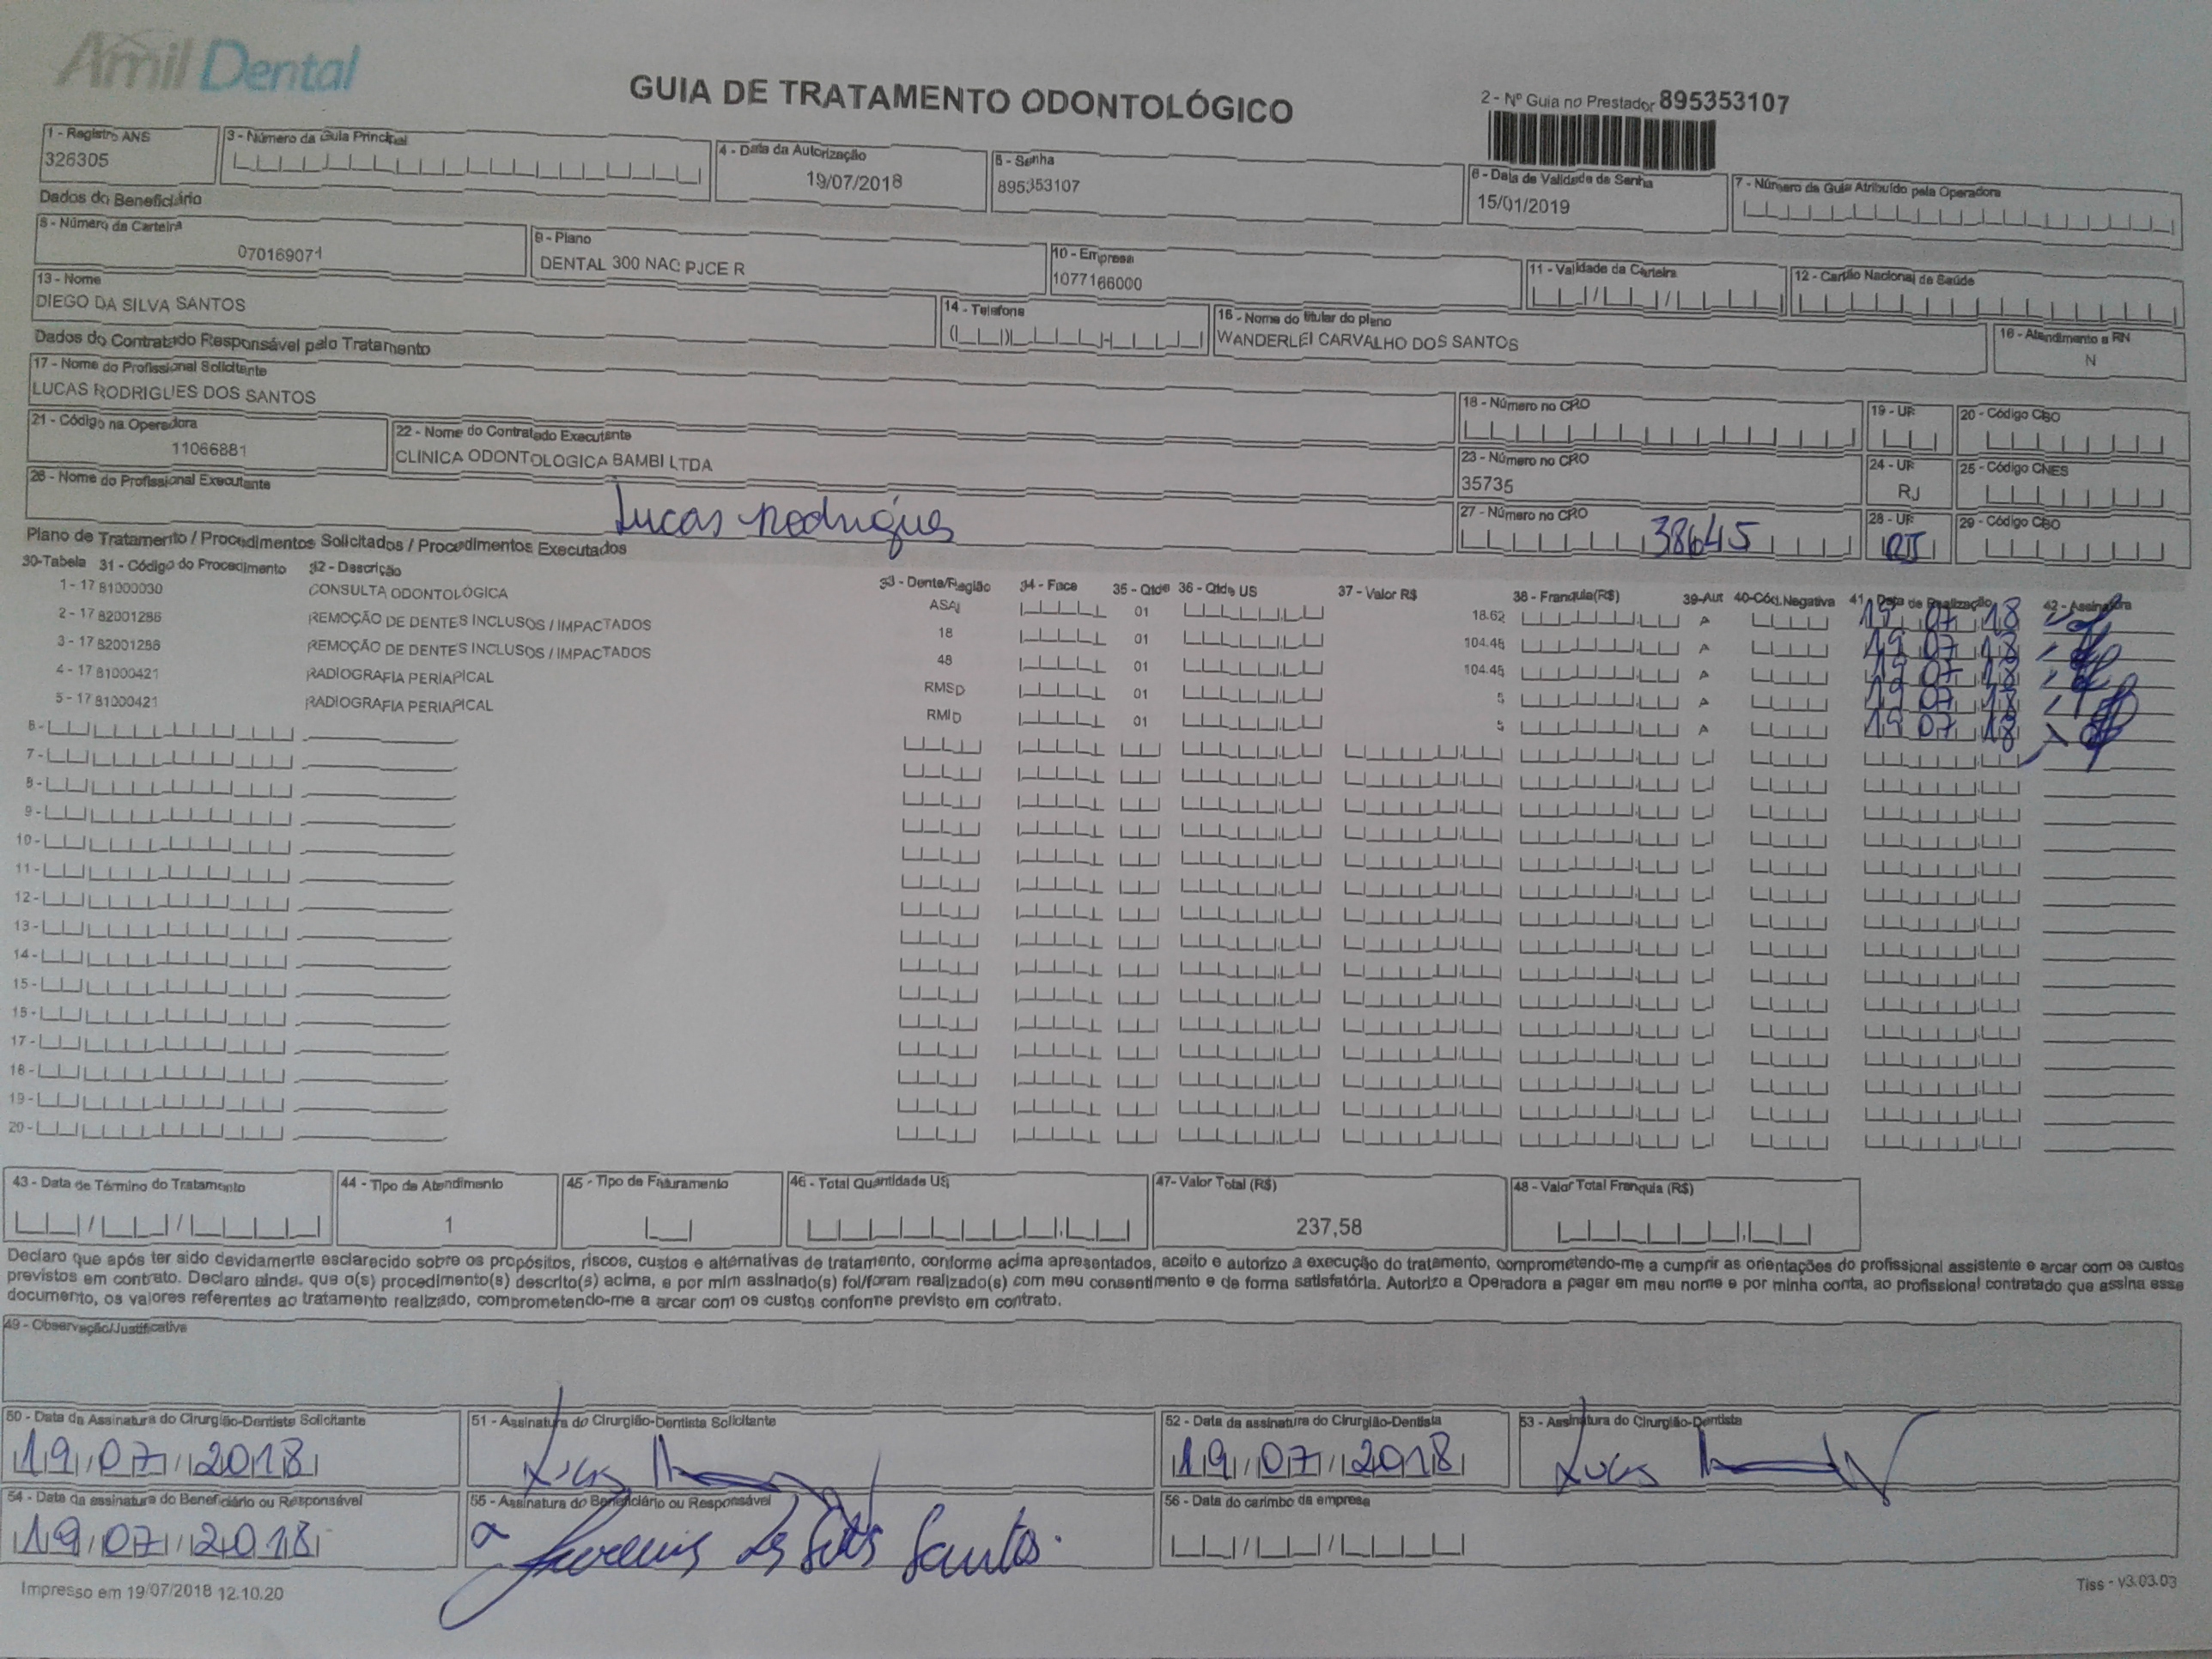 Amil Dental
GUIA DE TRATAMENTO ODONTOLÓGICO
2 - Nº Guia no Prestador 895353107
1 - Registro ANS
326305
3 - Número da Guia Principal
4 - Data da Autorização
19/07/2018
5 - Senha
895353107
6 - Data de Validade da Senha
15/01/2019
7 - Número da Guia Atribuído pela Operadora
Dados do Beneficiário
8 - Número da Carteira
070169071
9 - Plano
DENTAL 300 NAC PJCE R
10 - Empresa
1077166000
11 - Validade da Carteira
12 - Cartão Nacional de Saúde
13 - Nome
DIEGO DA SILVA SANTOS
14 - Telefone
15 - Nome do titular do plano
WANDERLEI CARVALHO DOS SANTOS
16 - Atendimento a RN
N
Dados do Contratado Responsável pelo Tratamento
17 - Nome do Profissional Solicitante
LUCAS RODRIGUES DOS SANTOS
18 - Número no CRO
19 - UF
20 - Código CBO
21 - Código na Operadora
11066881
22 - Nome do Contratado Executante
CLINICA ODONTOLOGICA BAMBI LTDA
23 - Número no CRO
35735
24 - UF
RJ
25 - Código CNES
26 - Nome do Profissional Executante
Lucas Rodrigues
27 - Número no CRO
38645
28 - UF
RJ
29 - Código CBO
Plano de Tratamento / Procedimentos Solicitados / Procedimentos Executados
30-Tabela 31 - Código do Procedimento 32 - Descrição 33 - Dente/Região 34 - Face 35 - Qtde 36 - Qtde US 37 - Valor R$ 38 - Franquia(R$) 39-Aut 40-Cód.Negativa 41 - Data de Realização 42 - Assinatura
1 - 17 81000030 CONSULTA ODONTOLÓGICA ASAI 01 18.62 A 19 07 18
2 - 17 82001286 REMOÇÃO DE DENTES INCLUSOS / IMPACTADOS 18 01 104.46 A 19 07 18
3 - 17 82001286 REMOÇÃO DE DENTES INCLUSOS / IMPACTADOS 48 01 104.46 A 19 07 18
4 - 17 81000421 RADIOGRAFIA PERIAPICAL RMSD 01 5 A 19 07 18
5 - 17 81000421 RADIOGRAFIA PERIAPICAL RMID 01 5 A 19 07 18
6 -
7 -
8 -
9 -
10 -
11 -
12 -
13 -
14 -
15 -
15 -
17 -
18 -
19 -
20 -
43 - Data de Término do Tratamento
44 - Tipo de Atendimento
1
45 - Tipo de Faturamento
46 - Total Quantidade US
47 - Valor Total (R$)
237,58
48 - Valor Total Franquia (R$)
Declaro que após ter sido devidamente esclarecido sobre os propósitos, riscos, custos e alternativas de tratamento, conforme acima apresentados, aceito e autorizo a execução do tratamento, comprometendo-me a cumprir as orientações do profissional assistente e arcar com os custos
previstos em contrato. Declaro ainda, que o(s) procedimento(s) descrito(s) acima, e por mim assinado(s) foi/foram realizado(s) com meu consentimento e de forma satisfatória. Autorizo a Operadora a pagar em meu nome e por minha conta, ao profissional contratado que assina esse
documento, os valores referentes ao tratamento realizado, comprometendo-me a arcar com os custos conforme previsto em contrato.
49 - Observação/Justificativa
50 - Data da Assinatura do Cirurgião-Dentista Solicitante
19/07/2018
51 - Assinatura do Cirurgião-Dentista Solicitante
Lucas
52 - Data da assinatura do Cirurgião-Dentista
19/07/2018
53 - Assinatura do Cirurgião-Dentista
Lucas
54 - Data da assinatura do Beneficiário ou Responsável
19/07/2018
55 - Assinatura do Beneficiário ou Responsável
56 - Data do carimbo da empresa
Impresso em 19/07/2018 12.10.20
Tiss - v3.03.03